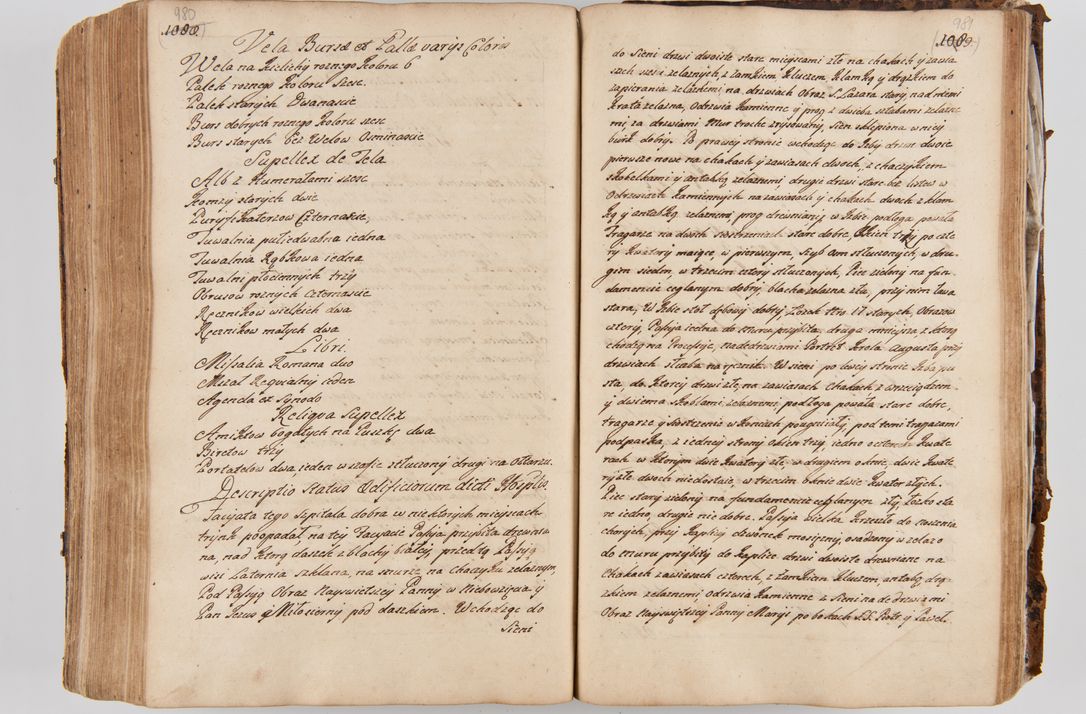 980
1088
Vela Bursæ et Pallæ varys Coloris
Wela na Kielichy roznego Koloru 6
Palek roznego Koloru szesc.
Palek starych Dwanascie
Burs dobrych roznego Koloru szesc
Burs starych bez Welow Osmnascie
Supellex de Tela
Alb z Humerałami szesc
Komzy starych dwie
Puryfikaterzow Czternascie,
Tuwalnia pułiedwabna iedna
Tuwalnia Rąbkowa iedna
Tuwalni płociennych trzy
Obrusow roznych czternascie
Ręcznikow wielkich dwa
Ręcznikow małych dwa
Libri.
Missalia Romana duo
Mszał Requialny ieden
Agenda ex Synodo
Reliqua Supellex
Amiktow bogatych na Puszkę dwa
Biretow trzy
Portatelow dwa, ieden w szafie stłuczony drugi na Ołtarzu.
Descriptio Status Ædificiorum dicti Hosplis.
Facyata tego Szpitala dobra w niektorych mieyscach
trynk poopadał, na tey Facyacie Passya przybita drewnia
na, nad ktorą daszek z blachy białey, przed tą Passyą
wisi Latarnia szklana, na sznurze, na Chaczyku zelaznym,
Pod Passyą Obraz Nayswietszey Panny w Niebowzięcia y
Pan Jezus Miłosierny pod daszkiem. Wchodząc do
Sieni
981
1089
do Sieni drzwi dwoiste stare mieyscami złe na chakach y zawia
szch szesci zelaznych, z zamkiem Kluczem, Klamką y drążkiem do
zapierania zelaznemi na drzwiach Obraz S. Łazara stary, nad niemi
Krata zelazna, odrzwia Kamienne y prog z dwiema sztabami zelazne
mi, za drzwiami Mur troche zrysowany, Sien sklepiona w niey
bruk dobry. Po prawey stronie wchodząc do Izby drzwi dwoie
pierwsze nowe na chakach y zawiasach dwoch, z chaczykiem
skobelkami y antabką zelaznemi, drugie drzwi stare bez listew w
Odrzwiach Kamiennych na zawiasach y chakach dwoch z klam
ką y antabką zelaznemi, prog drewniany, w Izbie podłoga powała
Tragarze na dwoch siestrzeniach stare dobre, Okien trzy po czte
ry kwatery maiące, w pierwszym, szyb osm stłuczonych, w dru
gim siedm, w trzecim cztery stłuczonych, Piec zielony na fun
damencie ceglanym dobry, blacha zelazna zła, przy nim ława
stara, W Izbie stoł dębowy dobry Łozek Nro 17 starych, Obrazow
cztery, Passya iedna do muru przybita, druga mnieysza z ktorą
chodzą na Processye, nadedrzwiami Portret Krola Augusta przy
drzwiach słuzba na ręcznik. W sieni po lewey stronie Izba pu
sta, do ktorey drzwi złe, na zawiasach Chakach z wrzeciądzem
y dwiema skoblami zelaznemi, podłoga powała stare dobre,
tragarze y siestrzenie w koncach pougniłały, pod temi tragarzami
podpaska, z iedney strony okien trzy, iedno o czterech kwate
rach w ktorym dwie kwatery złe, w drugiem oknie, dwie kwate
ry złe dwoch niedostaie, w trzecim oknie dwie kwatery złych.
Piec stary zielony na fundamencie ceglanym zły, Łozko sta
re iedno, drugie nie dobre. Passya wielka. Krzesło do noszenia
chorych, przy Kaplicy dzwonek mosięzny, osadzony w zelazo
do muru przybity, do Kaplice drzwi dwoiste drewniane na
Chakach zawiasach czterech, z Zamkiem Kluczem, antabą drą-
zkiem zelaznemi odrzwia Kamienne z Sieni nade drzwiami
Obraz Nayswiętszey Panny Maryi po bokach S.S. Piotr y Paweł.